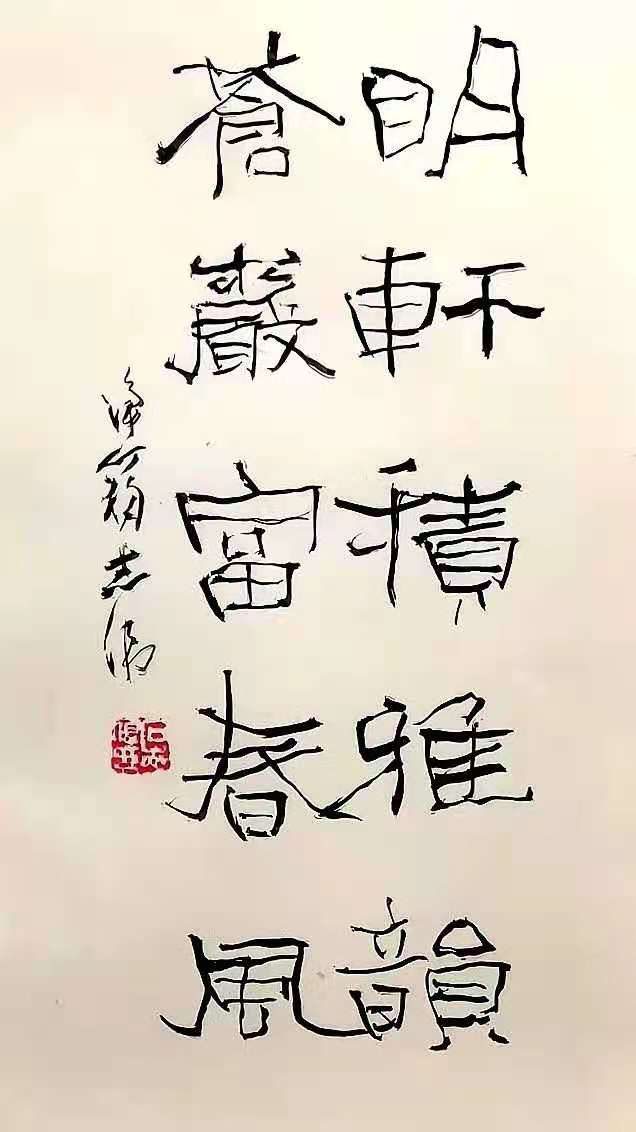 明軒積雅韻
蒼巖富春風
志